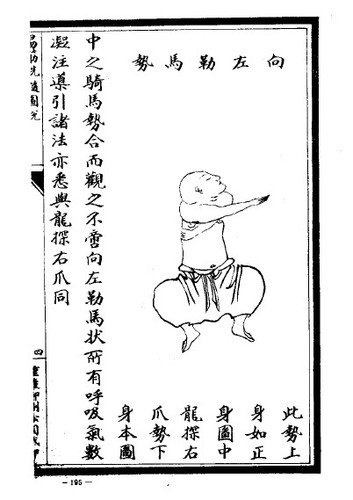 向左勒馬勢
此勢上
身如正
身圖中
龍探右
爪勢下
身本圖
中之騎馬勢合而觀之不啻向左勒馬狀所有呼吸氣數
凝注導引諸法亦悉與龍探右爪同
四
— 195 —